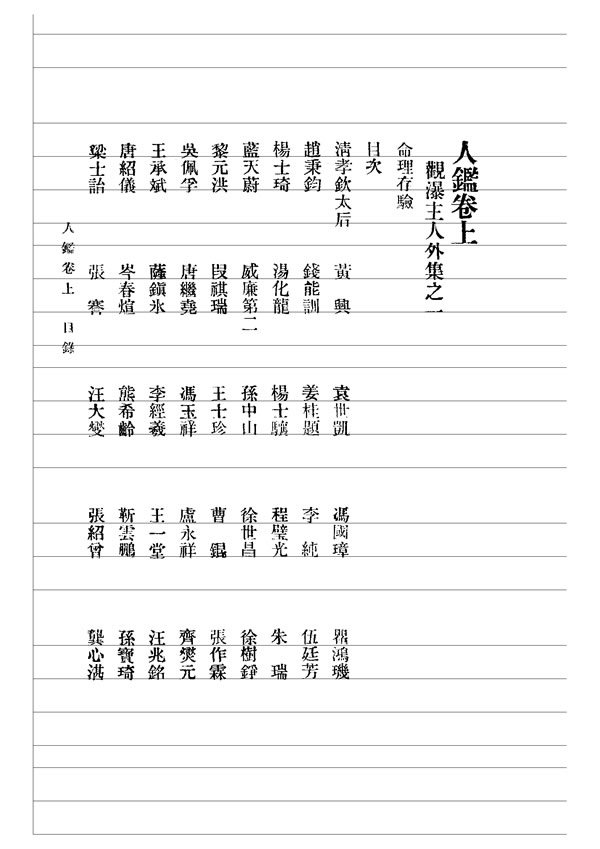 人鑑卷上
觀瀑主人外集之一
命理存驗
目次
清孝欽太后 黃　興 袁世凱 馮國璋 瞿鴻璣
趙秉鈞 錢能訓 姜桂題 李　純 伍廷芳
楊士琦 湯化龍 楊士驤 程璧光 朱　瑞
藍天蔚 威廉第二 孫中山 徐世昌 徐樹錚
黎元洪 段祺瑞 王士珍 曹　錕 張作霖
吳佩孚 唐繼堯 馮玉祥 盧永祥 齊燮元
王承斌 薩鎭氷 李經羲 王一堂 汪兆銘
唐紹儀 岑春煊 熊希齡 靳雲鵬 孫寶琦
梁士詒 張　謇 汪大燮 張紹曾 龔心湛
人鑑卷上 目錄